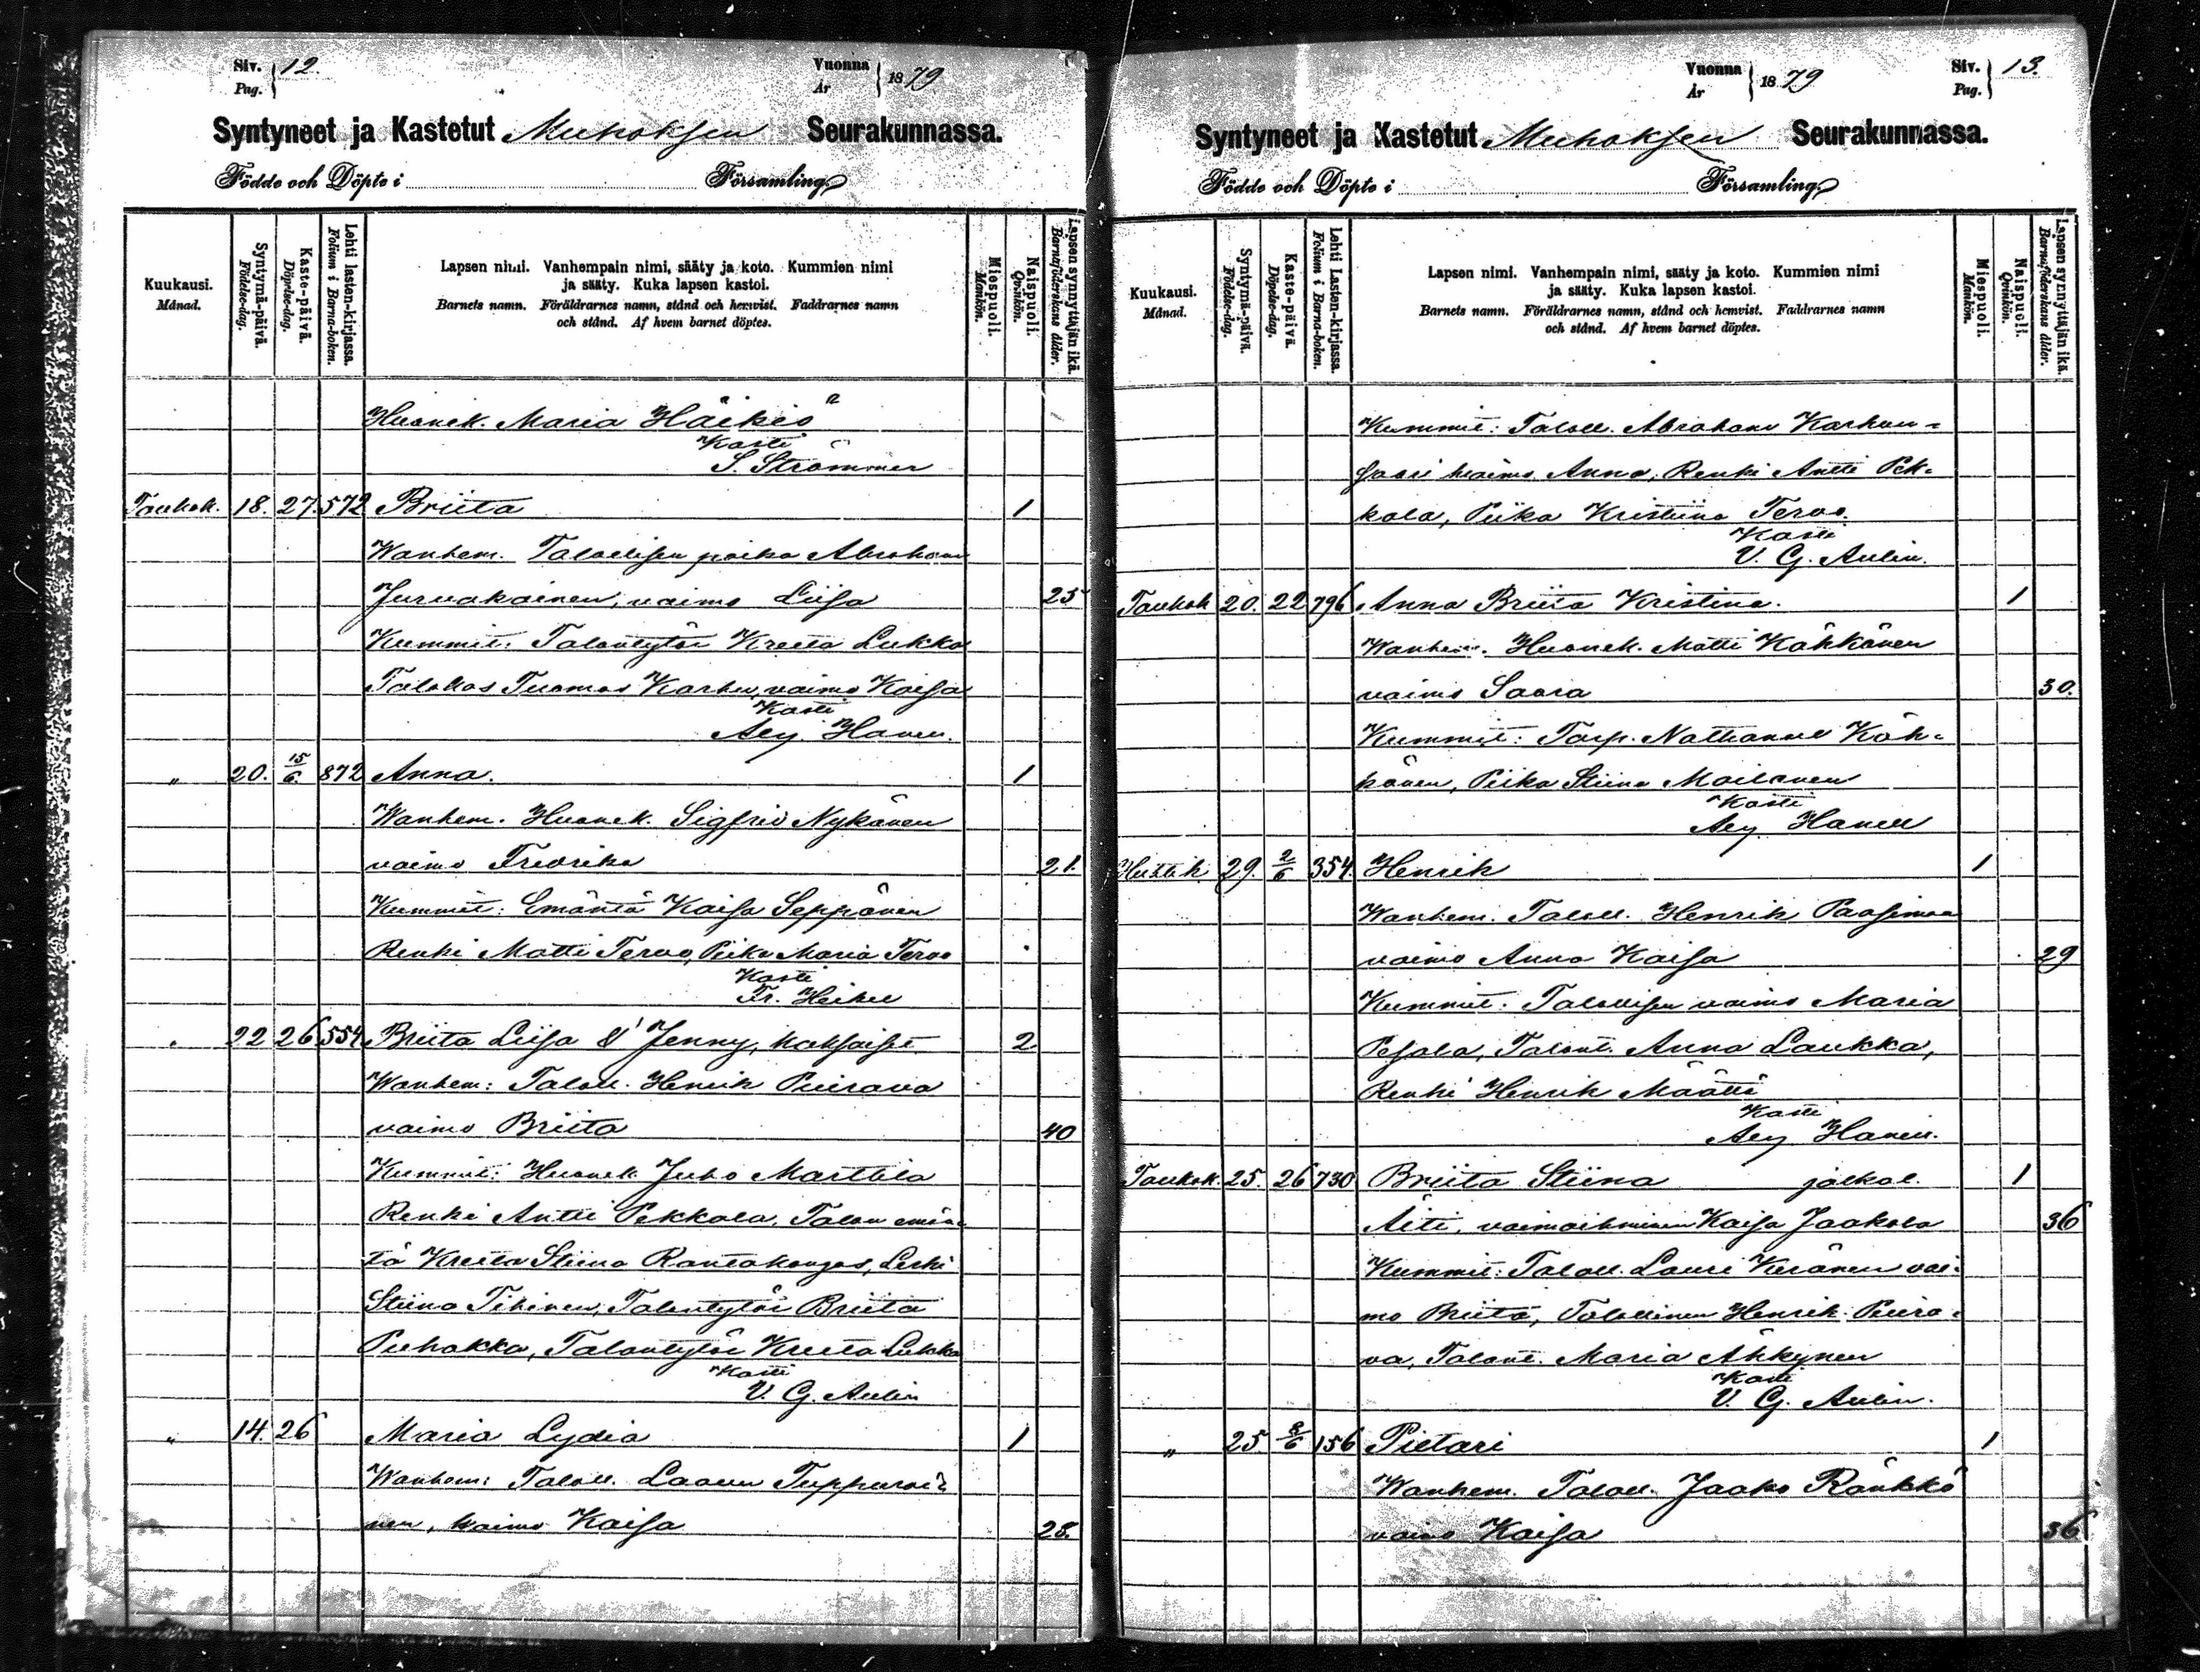 Siv. 12.
Pag.
Vuonna 1879
År
Syntyneet ja Kastetut Muhoksen Seurakunnassa.
Födde och Döpte i Församling.
Kuukausi.
Månad.
Syntymä-päivä.
Födelse-dag.
Kaste-päivä.
Döpelse-dag.
Lehti lasten-kirjassa.
Folium i Barna-boken.
Lapsen nimi. Vanhempain nimi, sääty ja koto. Kummien nimi
ja sääty. Kuka lapsen kastoi.
Barnets namn. Föräldrarnes namn, stånd och hemvist. Faddrarnes namn
och stånd. Af hvem barnet döptes.
Miespuoli.
Mankön.
Naispuoli.
Qvinkön.
Lapsen synnyttäjän ikä.
Barnaföderskans ålder.
Huonek. Maria Häikiö
Kasti
S. Strömmer
Toukok. 18. 27. 572 Briita 1
Wanhem. Talollisen poika Abraham
Jurvakainen, vaimo Liisa 25
Kummit: Talontytär Kreeta Lukka
Talokas Tuomas Karhu, vaimo Kaisa
Kasti
Aej. Hanell.
„ 20. 15/6. 872 Anna. 1
Wanhem. Huonek. Sigfrid Nykänen
vaimo Fredrika 21.
Kummit: Emäntä Kaisa Seppänen
Renki Matti Tervo, Piika Maria Tervo
Kasti
Fr. Heikel
„ 22 26 554 Briita Liisa & Jenny, kaksoiset 2
Wanhem: Taloll. Henrik Puirava
vaimo Briita 40
Kummit: Huonek. Juho Marttila
Renki Antti Pekkala, Talon emän-
tä Kreeta Stiina Rantakangas, Leski
Stiina Tihinen, Talontytär Briita
Puhakka, Talontytär Kreeta Lukka
Kasti
V. G. Aulin
„ 14. 26 Maria Lydia 1
Wanhem: Taloll. Laauri Tuppurai-
nen, vaimo Kaisa 28.
Vuonna 1879
År
Siv. 13.
Pag.
Syntyneet ja Kastetut Muhoksen Seurakunnassa.
Födde och Döpte i Församling.
Kuukausi.
Månad.
Syntymä-päivä.
Födelse-dag.
Kaste-päivä.
Döpelse-dag.
Lehti Lasten-kirjassa.
Folium i Barna-boken.
Lapsen nimi. Vanhempain nimi, sääty ja koto. Kummien nimi
ja sääty. Kuka lapsen kastoi.
Barnets namn. Föräldrarnes namn, stånd och hemvist. Faddrarnes namn
och stånd. Af hvem barnet döptes.
Miespuoli.
Mankön.
Naispuoli.
Qvinkön.
Lapsen synnyttäjän ikä.
Barnaföderskans ålder.
Kummit: Taloll. Abraham Karhun-
saari vaimo Anna, Renki Antti Pek-
kala, Piika Kristiina Tervo.
Kasti
V. G. Aulin.
Toukok 20. 22 796 Anna Briita Kristina. 1
Wanhem. Huonek. Matti Kähkänen
vaimo Saara 30.
Kummit: Torp. Nathanael Käh-
känen, Piika Stiina Moilanen
Kasti
Aej. Hanell
Huhtik 29. 2/6 354. Henrik 1
Wanhem. Taloll. Henrik Paasimaa
vaimo Anna Kaisa 29
Kummit: Talollisen vaimo Maria
Pesala, Talont. Anna Laukka,
Renki Henrik Määttä
Kasti
Aej. Hanell.
Toukok. 25. 26 730 Briita Stiina jalkal. 1
Äiti, vaimoihminen Kaisa Jaakola 36
Kummit: Taloll. Lauri Keränen vai-
mo Briita, Talollinen Henrik Puira-
va, Talont. Maria Ähkynen
Kasti
V. G. Aulin.
„ 25 8/6 156 Pietari 1
Wanhem. Taloll. Jaako Ränkkö
vaimo Kaisa 36